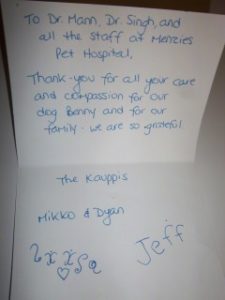 To Dr. Mann, Dr. Singh, and
all the staff at Menzies
Pet Hospital,
Thank-you for all your care
and compassion for our
dog Benny and for our
family - we are so grateful.
The Kauppis
Mikko & Dyan
Jeff